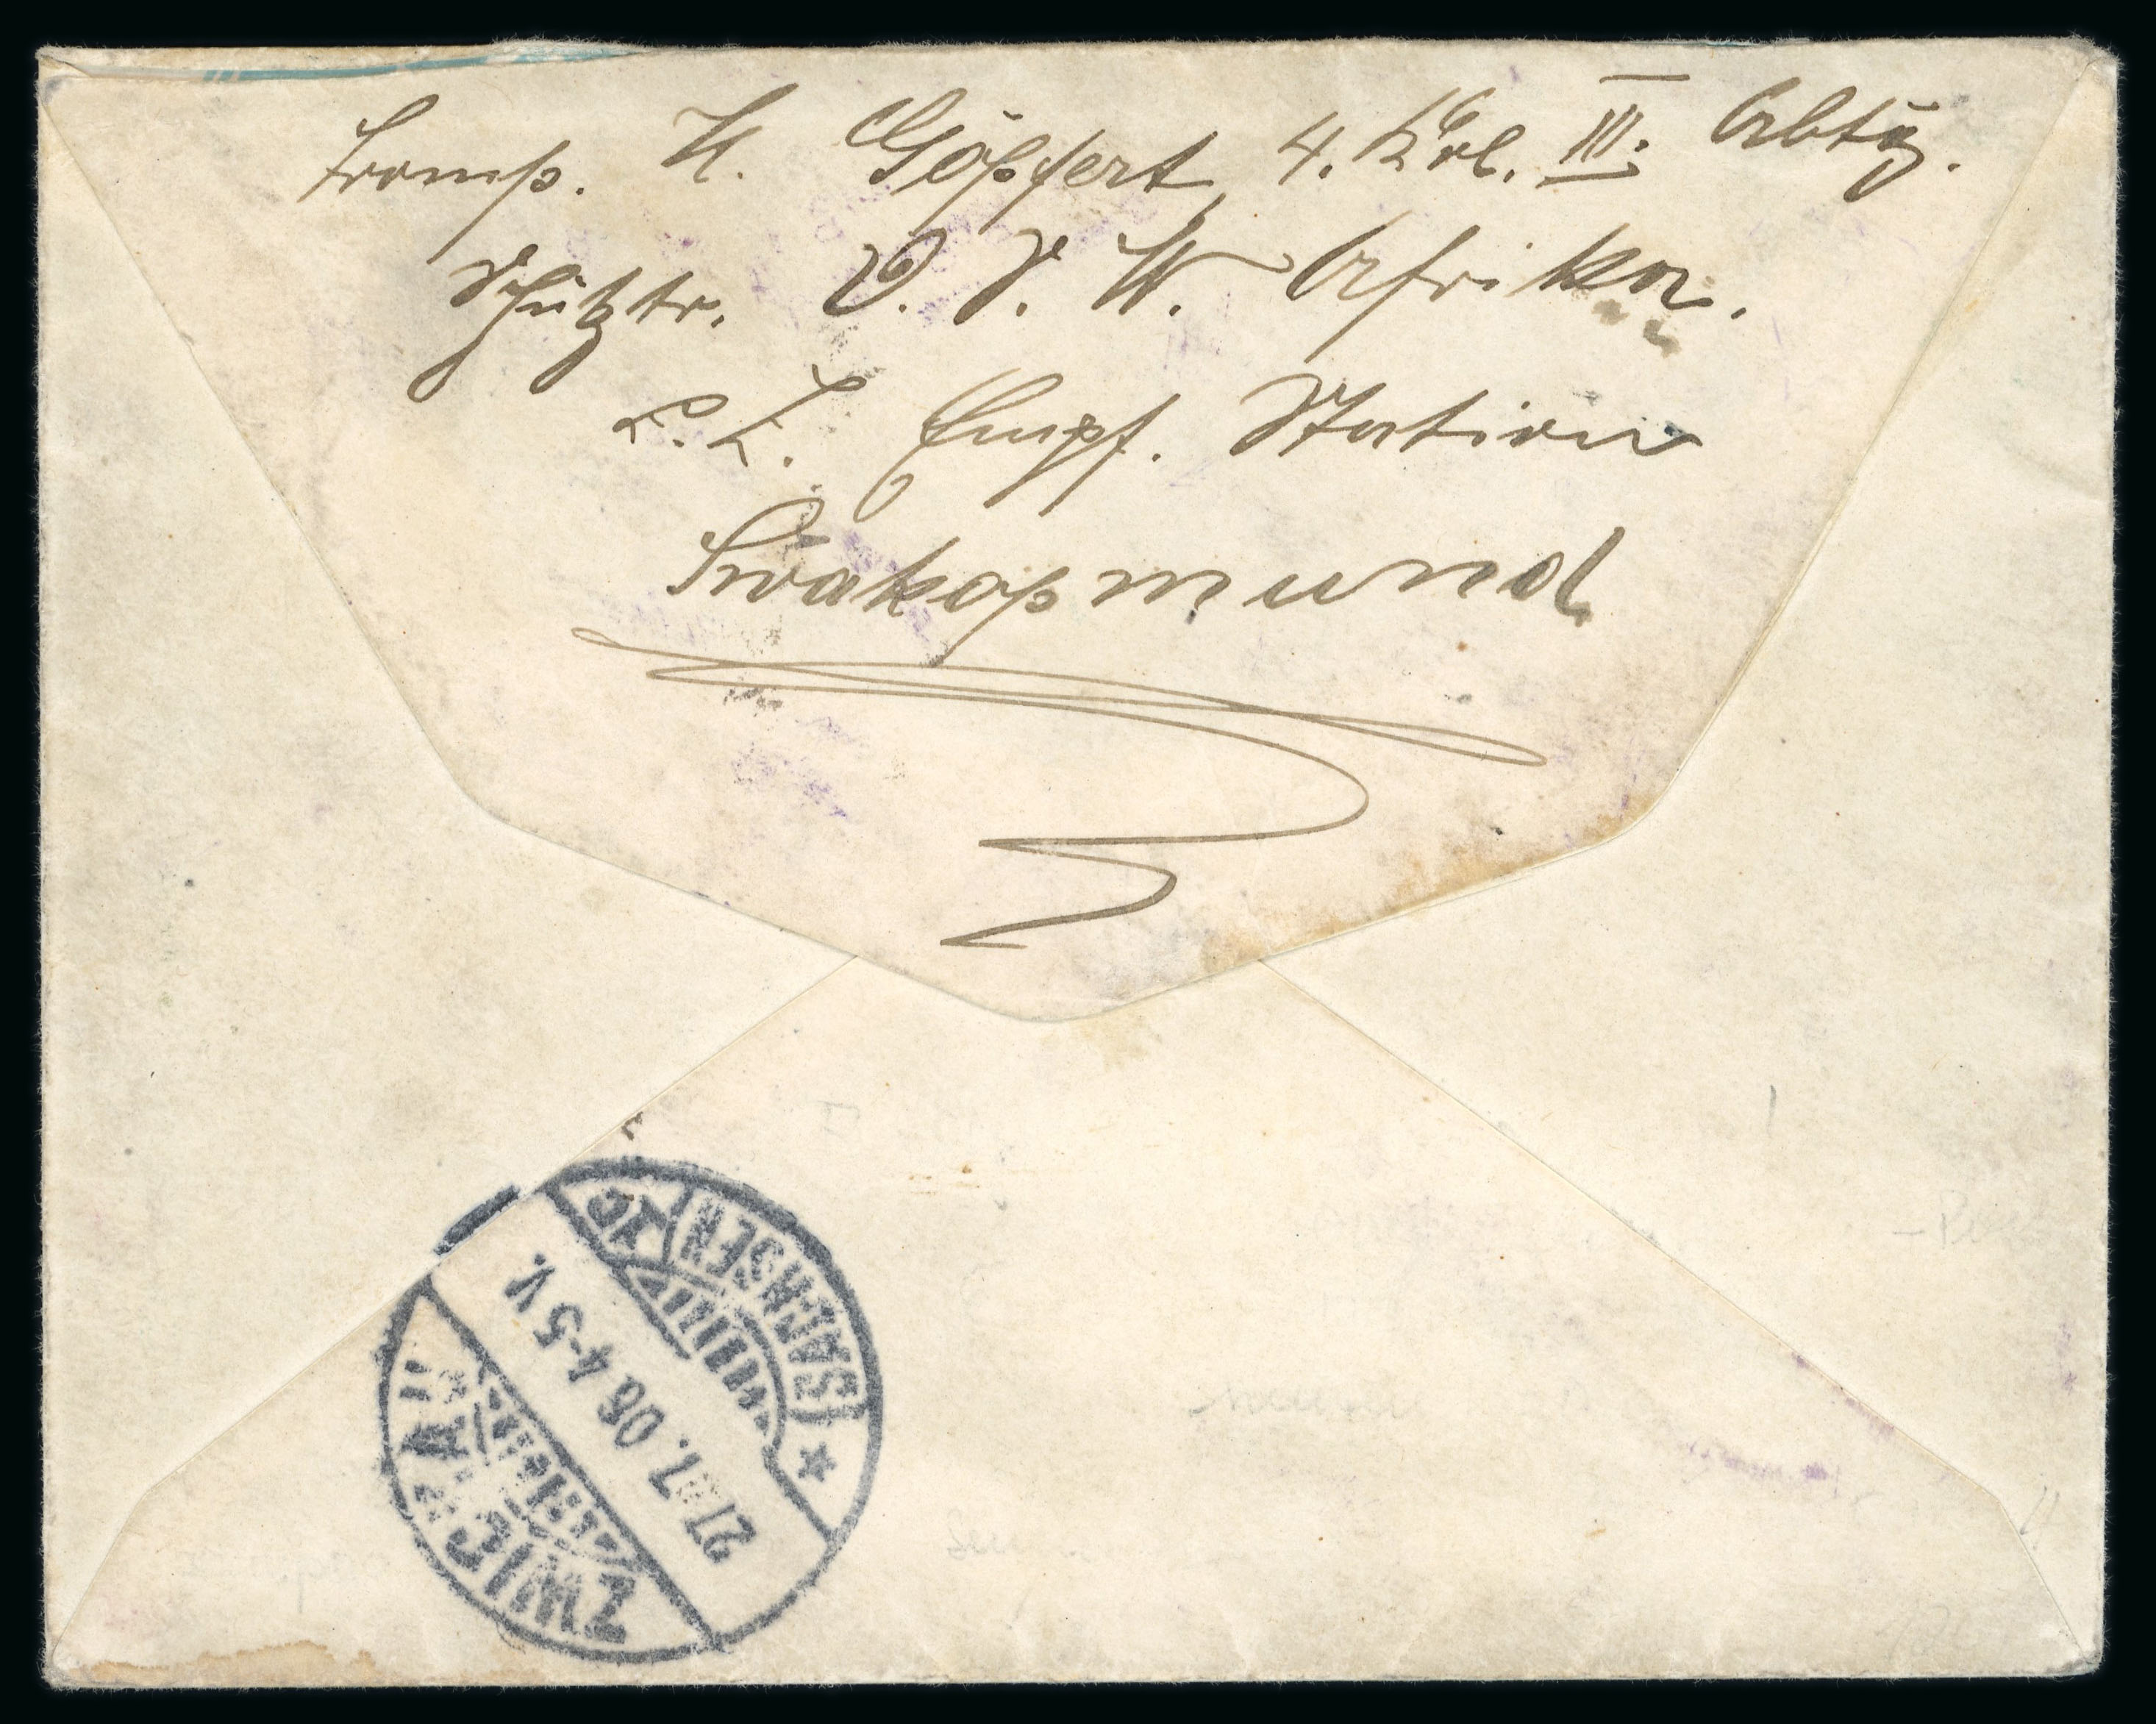 Tromp. K. Göpfert, 4. Kol. III. Abtlg.
Schutztr. D. S. W. Afrika.
z. Z. Empf. Station
Swakopmund
ZWICKAU
(SACHSEN)
27.7.06 4-5 V.